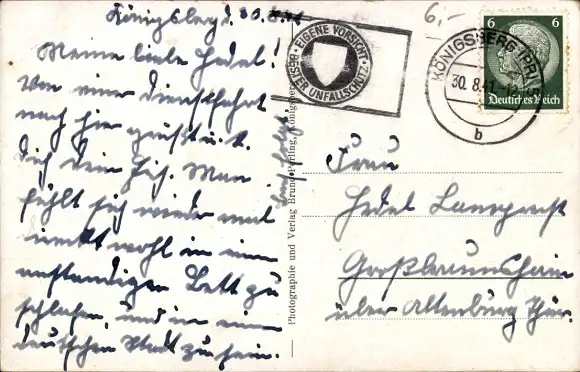 Königsberg d. 30.8.41
Meine liebe Hedel!
Von einer Dienstfahrt
nach hier grüßt u. k.
Dich Dein Heh. Man
fühlt sich wieder mal
wohl in einem
anständigen Bett zu
schlafen, und in einer
deutschen Stadt zu sein.
Photographie und Verlag Bruno Perling, Königsberg
EIGENE VORSICHT
BESTER UNFALLSCHUTZ
6,-
KÖNIGSBERG (PR)
30.8.41
b
6 6
Deutsches Reich
Frau
Hedel Lamprecht
Großbraunshain
über Altenburg Thür.